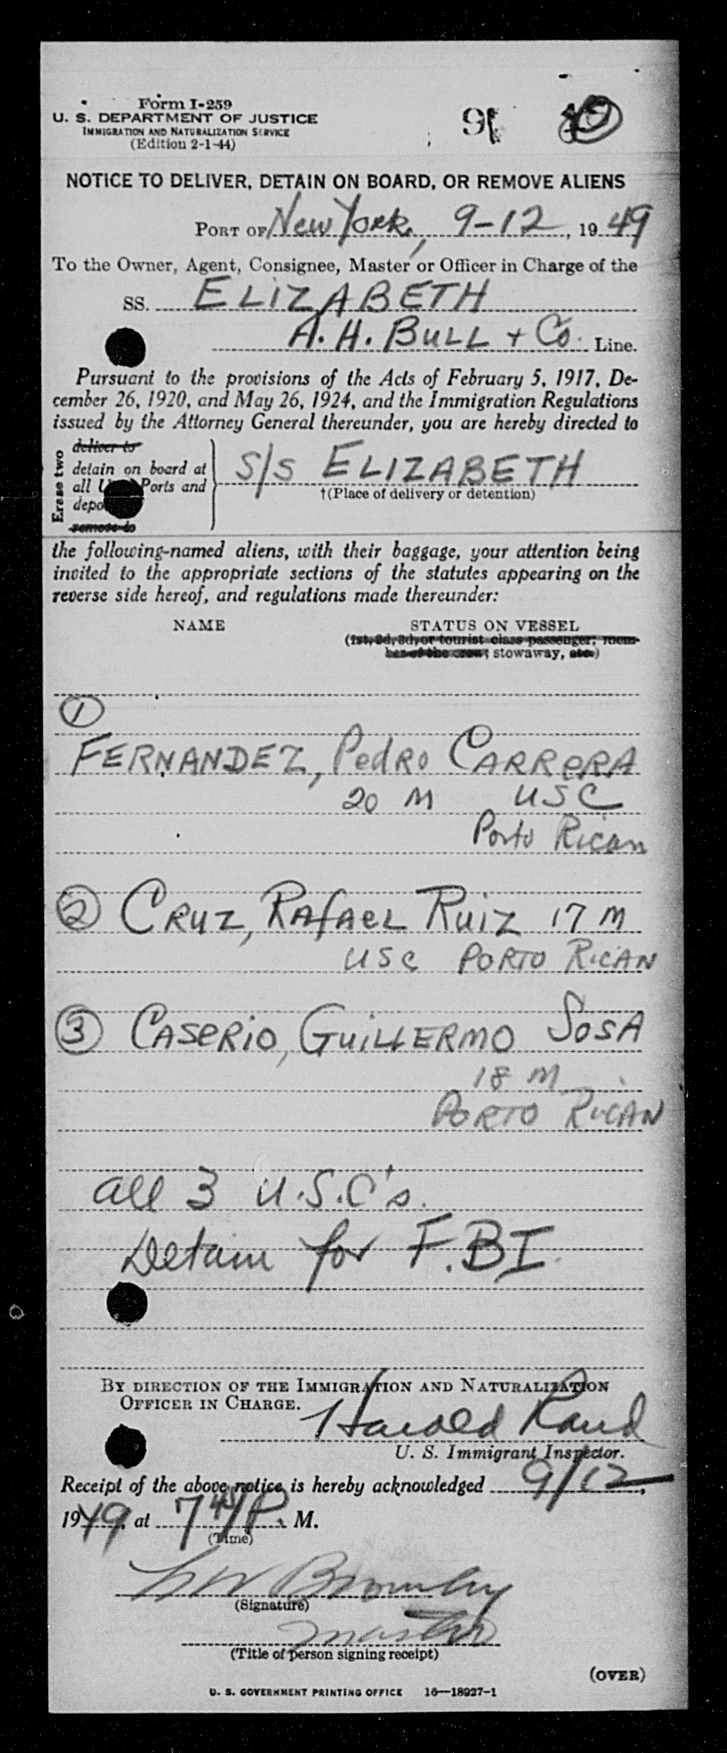 Form I-259
U. S. DEPARTMENT OF JUSTICE
IMMIGRATION AND NATURALIZATION SERVICE
(Edition 2-1-44)
NOTICE TO DELIVER, DETAIN ON BOARD, OR REMOVE ALIENS
PORT OF New York, 9-12, 1949
To the Owner, Agent, Consignee, Master or Officer in Charge of the
SS. ELIZABETH
A. H. BULL + Co. Line.
Pursuant to the provisions of the Acts of February 5, 1917, De-
cember 26, 1920, and May 26, 1924, and the Immigration Regulations
issued by the Attorney General thereunder, you are hereby directed to
Erase two
deliver to
detain on board at
all Ports and
remove to
S/S ELIZABETH
†(Place of delivery or detention)
the following-named aliens, with their baggage, your attention being
invited to the appropriate sections of the statutes appearing on the
reverse side hereof, and regulations made thereunder:
NAME STATUS ON VESSEL
(1st, 2d, 3d, or tourist class passenger; mem-
ber of the crew; stowaway, etc.)
1
FERNANDEZ, Pedro CARRERA
20 M USC
Porto Rican
2 CRUZ, RAfAEL RUIZ 17 M
USC PORTO RICAN
3 CASERIO, GUILLERMO SOSA
18 M
PORTO RICAN
all 3 U.S.C's.
Detain for F.BI.
BY DIRECTION OF THE IMMIGRATION AND NATURALIZATION
OFFICER IN CHARGE.
Harold Rand
U. S. Immigrant Inspector.
Receipt of the above notice is hereby acknowledged 9/12,
1949, at 7 45/P. M.
(Time)
Bromley
(Signature)
Master
(Title of person signing receipt)
(OVER)
U. S. GOVERNMENT PRINTING OFFICE 16—18927-1